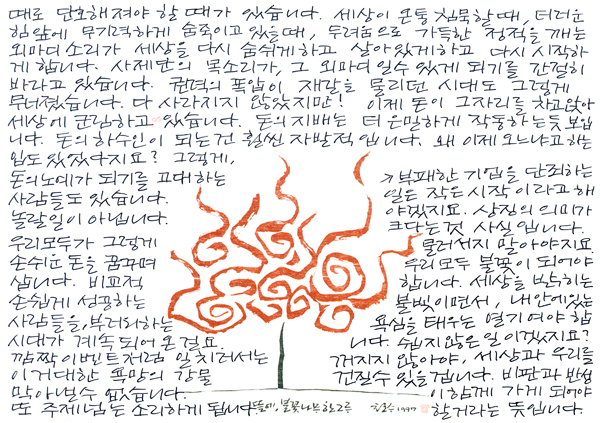 때로 단호해져야 할 때가 있습니다. 세상이 온통 침묵할 때, 더러운
힘 앞에 무기력하게 숨죽이고 있을 때, 두려움으로 가득한 정적을 깨는
외마디 소리가 세상을 다시 숨쉬게 하고 살아있게 하고 다시 시작하
게 합니다. 사제단의 목소리가, 그 외마디일 수 있게 되기를 간절히
바라고 있습니다. 권력의 폭압이 재갈을 물리던 시대도 그렇게
무너졌습니다. 다 사라지지 않았지만! 이제 돈이 그자리를 차고앉아
세상에 군림하고 있습니다. 돈의 지배는 더 은밀하게 작동하는듯 보입
니다. 돈의 하수인이 되는건 훨씬 자발적입니다. 왜 이제 오느냐고 하는
입도 있었다지요? 그렇게,
돈의 노예가 되기를 고대하는
사람들도 있습니다.
놀랄 일이 아닙니다.
우리 모두가 그렇게
손쉬운 돈을 꿈꾸며
삽니다. 비교적
손쉽게 성공하는
사람들을, 부러워하는
시대가 계속되어 온걸요.
깜짝 이벤트처럼 일 치러서는
이 거대한 욕망의 강물
막아낼 수 없습니다.
또 주제넘는 소리하게 됩니다.
부패한 기업을 단죄하는
일은 작은 시작이라고 해
야겠지요. 상징의 의미가
크다는 것 사실입니다.
물러서지 말아야지요.
우리 모두 불꽃이 되어야
합니다. 세상을 밝히는
불빛이면서, 내 안에 있는
욕심을 태우는 열기여야 합
니다. 쉽지 않은 일이겠지요?
꺼지지 않아야, 세상과 우리를
건질 수 있을 겁니다. 비판과 반성
이 함께 가게 되어야
할 거라는 뜻입니다.
들에, 불꽃나무 한그루
1997